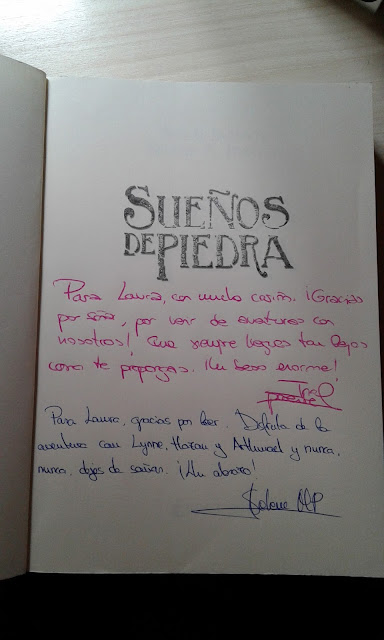 SUEÑOS
DE PIEDRA
Para Laura, con mucho cariño. ¡Gracias
por soñar, por venir de aventuras con
nosotros! Que siempre llegues tan lejos
como te propongas. ¡Un beso enorme!
Para Laura, gracias por leer. Disfruta de la
aventura con Lynne, Hazan y Arthmael y nunca,
nunca, dejes de soñar. ¡Un abrazo!
Selene